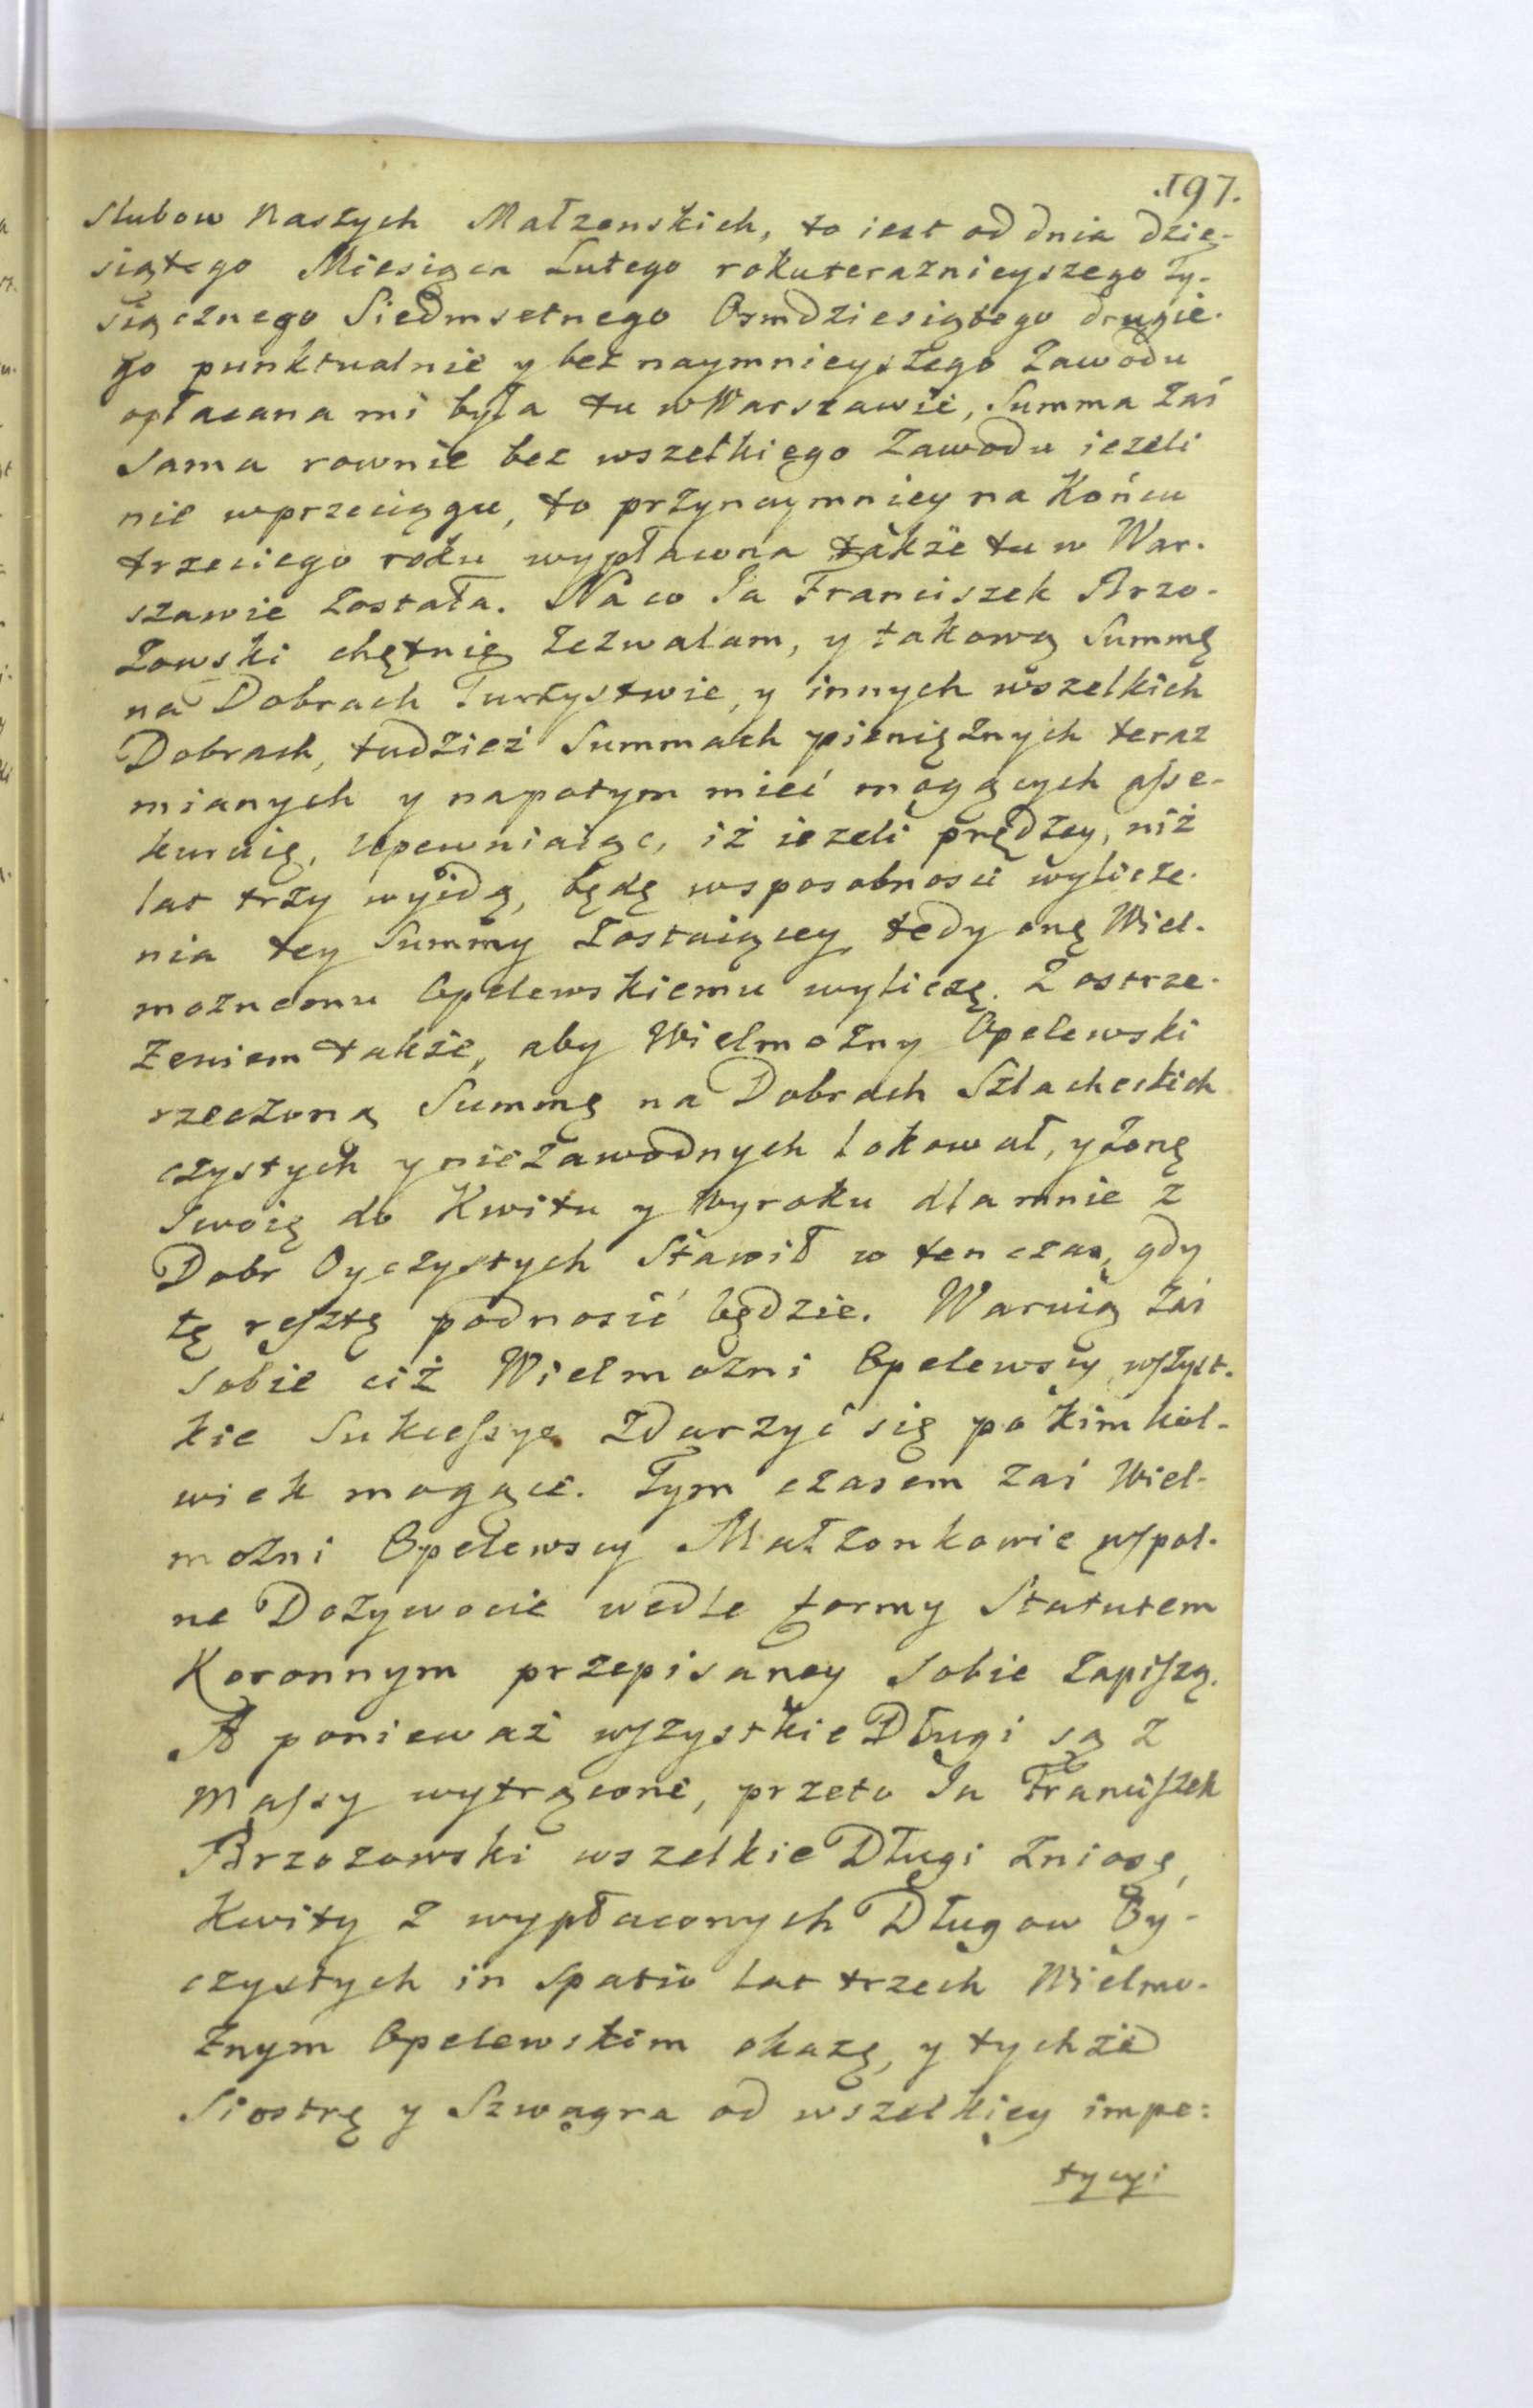 197.
Slubow naszych Małzenskich, to iest od dnia dzie-
siątego Miesiąca Lutego roku teraznieyszego Ty-
siącznego Siedmsetnego Osmdziesiątego drugie-
go punktualnie y bez naymnieyszego zawodu
opłacana mi była tu w Warszawie, Summa zaś
sama rownie bez wszelkiego zawodu iezeli
nie w przeciągu, to przynaymniey na Końcu
trzeciego roku wypłacona także tu w War-
szawie została. Na co Ja Franciszek Brzo-
zowski chętnie zezwalam, y takową Summę
na Dobrach Turzystwie, y innych wszelkich
Dobrach, tudzież Summach pieniężnych teraz
mianych y napotym mieć mogących asse-
kuruię, upewniaiąc, iż iezeli prędzey, niż
lat trzy wyidą, będę w sposobnosci wylicze-
nia tey Summy zostaiącey, tedy onę Wiel-
moznemu Opelewskiemu wyliczę. Z ostrze-
zeniem także, aby Wielmozny Opelewski
rzeczoną Summę na Dobrach Szlacheckich
czystych y niezawodnych lokował, y żonę
swoię do Kwitu y Wyroku dla mnie z
Dobr Oyczystych Stawił w ten czas, gdy
tę resztę podnosić będzie. Waruią zaś
sobie ciż Wielmozni Opelewscy wszyst-
kie Sukcessye zdarzyć się po kimkol-
wiek mogące. Tym czasem zaś Wiel-
mozni Opelewscy Małzonkowie wspol-
ne Dozywocie wedle formy Statutem
Koronnym przepisaney sobie zapiszą.
A ponieważ wszystkie Długi są z
Massy wytrącone, przeto Ja Franciszek
Brzozowski wszelkie Długi zniosę,
Kwity z wypłaconych Długow Oy-
czystych in spatio lat trzech Wielmo-
żnym Opelewskim okażę, y tychże
Siostrę y Szwagra od wszelkiey impe-
tycyi